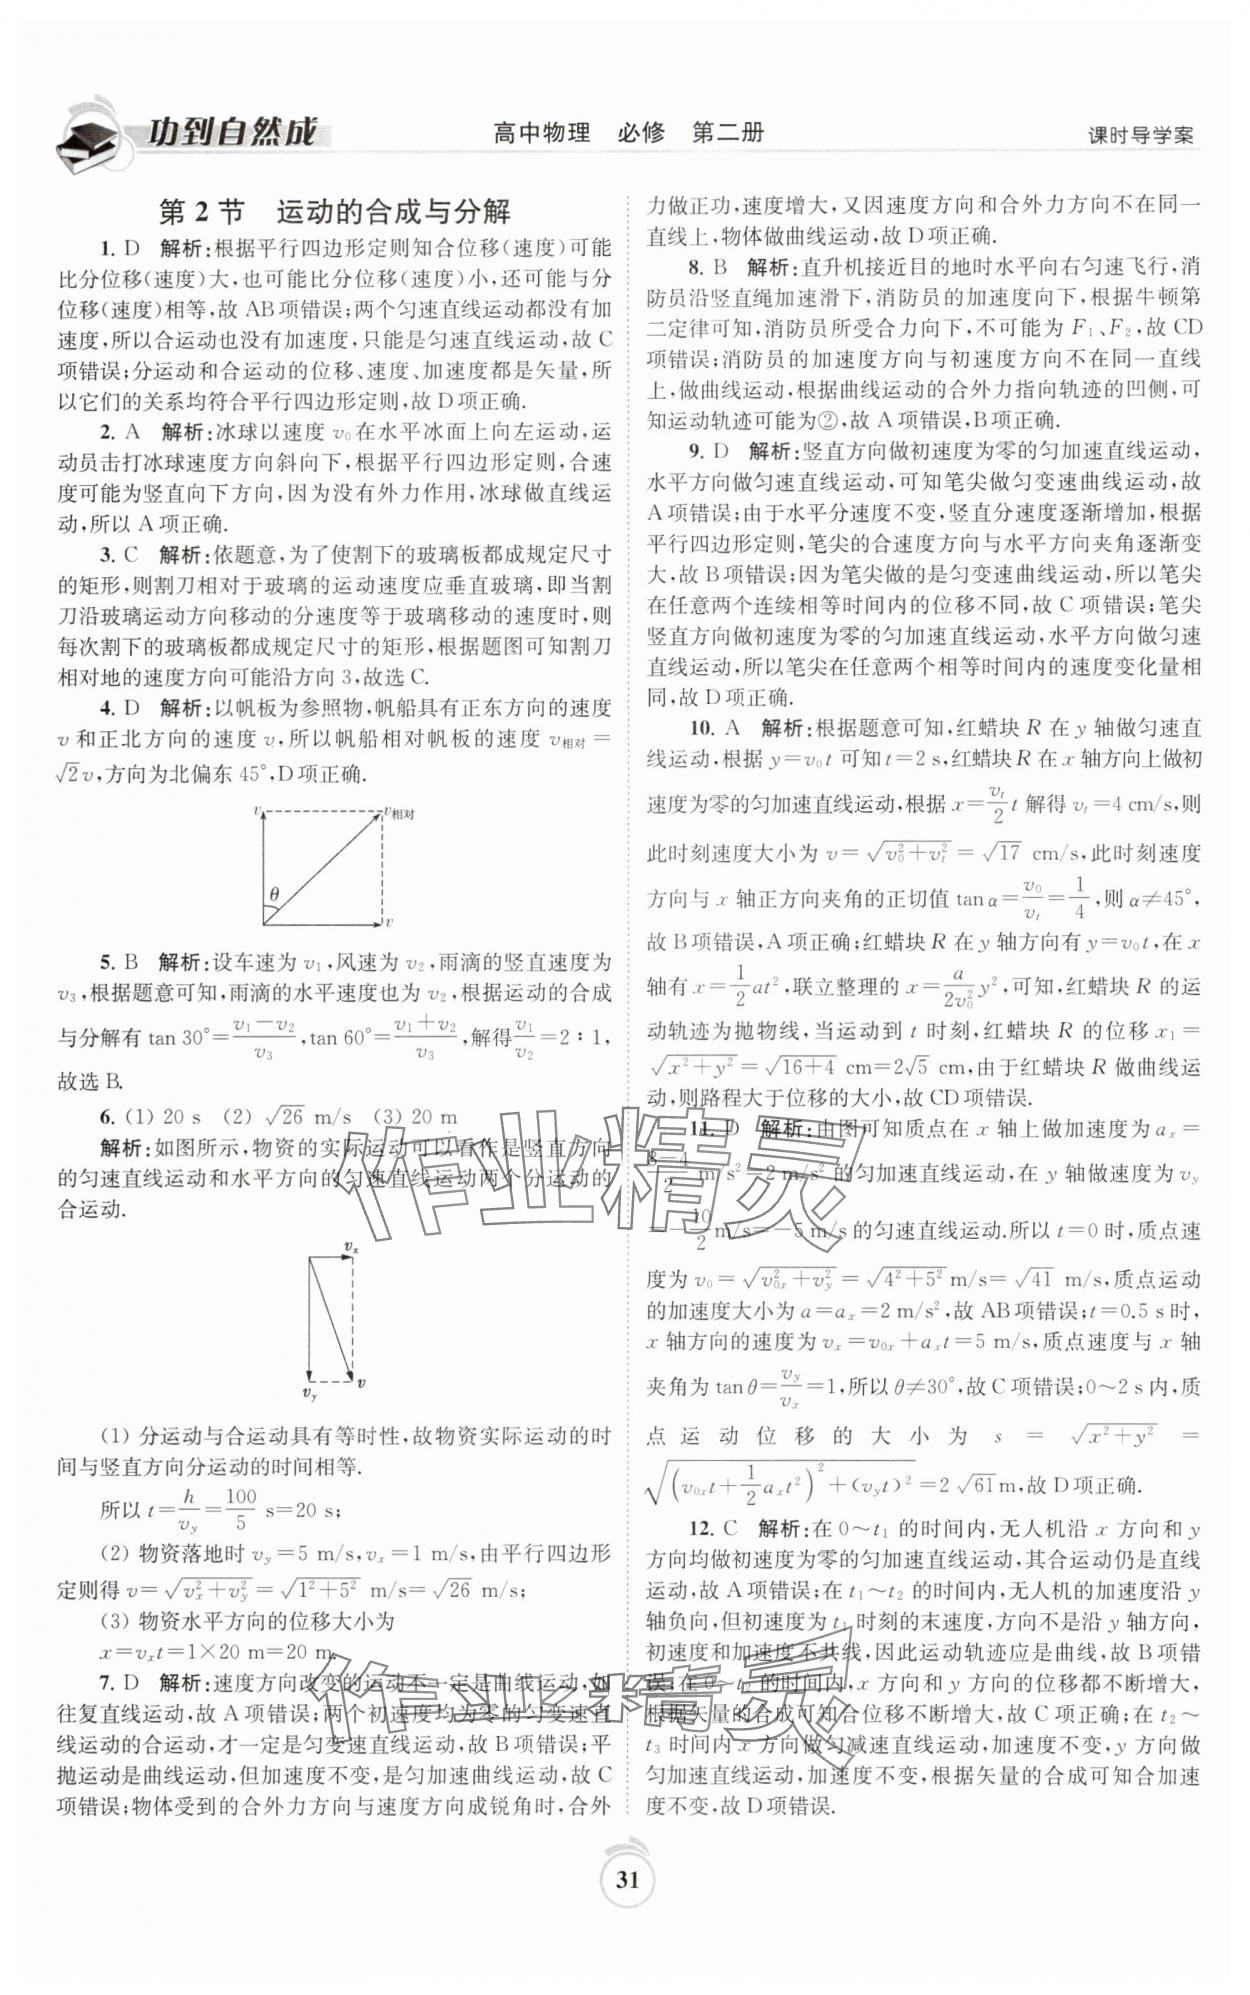 功到自然成
高中物理 必修 第二册
课时导学案
第2节 运动的合成与分解
1. D 解析:根据平行四边形定则知合位移(速度)可能
比分位移(速度)大,也可能比分位移(速度)小,还可能与分
位移(速度)相等,故 AB项错误;两个匀速直线运动都没有加
速度,所以合运动也没有加速度,只能是匀速直线运动,故 C
项错误;分运动和合运动的位移、速度、加速度都是矢量,所
以它们的关系均符合平行四边形定则,故 D项正确.
2. A 解析:冰球以速度 v₀在水平冰面上向左运动,运
动员击打冰球速度方向斜向下,根据平行四边形定则,合速
度可能为竖直向下方向,因为没有外力作用,冰球做直线运
动,所以 A项正确.
3. C 解析:依题意,为了使割下的玻璃板都成规定尺寸
的矩形,则割刀相对于玻璃的运动速度应垂直玻璃,即当割
刀沿玻璃运动方向移动的分速度等于玻璃移动的速度时,则
每次割下的玻璃板都成规定尺寸的矩形,根据题图可知割刀
相对地的速度方向可能沿方向 3,故选 C.
4. D 解析:以帆板为参照物,帆船具有正东方向的速度
v 和正北方向的速度 v,所以帆船相对帆板的速度 v相对=
√2v,方向为北偏东 45°,D项正确.
v
v相对
θ
v
5. B 解析:设车速为 v₁,风速为 v₂,雨滴的竖直速度为
v₃,根据题意可知,雨滴的水平速度也为 v₂,根据运动的合成
与分解有 tan 30°=(v₁-v₂)/v₃,tan 60°=(v₁+v₂)/v₃,解得v₁/v₂=2∶1,
故选 B.
6. (1) 20 s (2) √26 m/s (3) 20 m
解析:如图所示,物资的实际运动可以看作是竖直方向
的匀速直线运动和水平方向的匀速直线运动两个分运动的
合运动.
vₓ
v_y
v
(1) 分运动与合运动具有等时性,故物资实际运动的时
间与竖直方向分运动的时间相等.
所以 t=h/v_y=100/5 s=20 s;
(2) 物资落地时 v_y=5 m/s,vₓ=1 m/s,由平行四边形
定则得 v=√(vₓ²+v_y²)=√(1²+5²) m/s=√26 m/s;
(3) 物资水平方向的位移大小为
x=vₓt=1×20 m=20 m.
7. D 解析:速度方向改变的运动不一定是曲线运动,如
往复直线运动,故 A项错误;两个初速度均为零的匀变速直
线运动的合运动,才一定是匀变速直线运动,故 B项错误;平
抛运动是曲线运动,但加速度不变,是匀加速曲线运动,故 C
项错误;物体受到的合外力方向与速度方向成锐角时,合外
力做正功,速度增大,又因速度方向和合外力方向不在同一
直线上,物体做曲线运动,故 D项正确.
8. B 解析:直升机接近目的地时水平向右匀速飞行,消
防员沿竖直绳加速滑下,消防员的加速度向下,根据牛顿第
二定律可知,消防员所受合力向下,不可能为 F₁、F₂,故 CD
项错误;消防员的加速度方向与初速度方向不在同一直线
上,做曲线运动,根据曲线运动的合外力指向轨迹的凹侧,可
知运动轨迹可能为②,故 A项错误,B项正确.
9. D 解析:竖直方向做初速度为零的匀加速直线运动,
水平方向做匀速直线运动,可知笔尖做匀变速曲线运动,故
A项错误;由于水平分速度不变,竖直分速度逐渐增加,根据
平行四边形定则,笔尖的合速度方向与水平方向夹角逐渐变
大,故 B项错误;因为笔尖做的是匀变速曲线运动,所以笔尖
在任意两个连续相等时间内的位移不同,故 C项错误;笔尖
竖直方向做初速度为零的匀加速直线运动,水平方向做匀速
直线运动,所以笔尖在任意两个相等时间内的速度变化量相
同,故 D项正确.
10. A 解析:根据题意可知,红蜡块 R 在 y 轴做匀速直
线运动,根据 y=v₀t 可知 t=2 s,红蜡块 R 在 x 轴方向上做初
速度为零的匀加速直线运动,根据 x=(vₜ/2)t 解得 vₜ=4 cm/s,则
此时刻速度大小为 v=√(v₀²+vₜ²)=√17 cm/s,此时刻速度
方向与 x 轴正方向夹角的正切值 tan α=v₀/vₜ=1/4,则 α≠45°,
故 B项错误,A项正确;红蜡块 R 在 y 轴方向有 y=v₀t,在 x
轴有 x=1/2 at²,联立整理的 x=a/(2v₀²) y²,可知,红蜡块 R 的运
动轨迹为抛物线,当运动到 t 时刻,红蜡块 R 的位移 x₁=
√(x²+y²)=√(16+4) cm=2√5 cm,由于红蜡块 R 做曲线运
动,则路程大于位移的大小,故 CD项错误.
11. D 解析:由图可知质点在 x 轴上做加速度为 aₓ=
(8-4)/2 m/s²=2 m/s² 的匀加速直线运动,在 y 轴做速度为 v_y
=-10/2 m/s=-5 m/s的匀速直线运动.所以 t=0 时,质点速
度为 v₀=√(v₀ₓ²+v_y²)=√(4²+5²) m/s=√41 m/s,质点运动
的加速度大小为 a=aₓ=2 m/s²,故 AB项错误;t=0.5 s时,
x 轴方向的速度为 vₓ=v₀ₓ+aₓt=5 m/s,质点速度与 x 轴
夹角为 tan θ=v_y/vₓ=1,所以 θ≠30°,故 C项错误;0～2 s内,质
点运动位移的大小为 s=√(x²+y²)=
√((v₀ₓt+1/2 aₓt²)²+(v_yt)²)=2√61 m,故 D项正确.
12. C 解析:在 0～t₁ 的时间内,无人机沿 x 方向和 y
方向均做初速度为零的匀加速直线运动,其合运动仍是直线
运动,故 A项错误;在 t₁～t₂ 的时间内,无人机的加速度沿 y
轴负向,但初速度为 t₁ 时刻的末速度,方向不是沿 y 轴方向,
初速度和加速度不共线,因此运动轨迹应是曲线,故 B项错
误;在 0～t₂ 的时间内,x 方向和 y 方向的位移都不断增大,
根据矢量的合成可知合位移不断增大,故 C项正确;在 t₂～
t₃ 时间内 x 方向做匀减速直线运动,加速度不变,y 方向做
匀加速直线运动,加速度不变,根据矢量的合成可知合加速
度不变,故 D项错误.
作业精灵
作业精灵
31